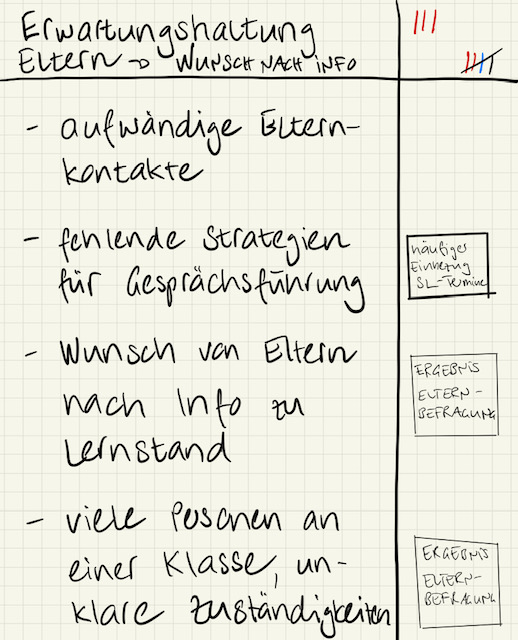 Erwartungshaltung
Eltern → WUNSCH NACH INFO
- aufwändige Eltern-
kontakte
- fehlende Strategien
für Gesprächsführung
häufiges
Einbezug
SL-Termine
- Wunsch von Eltern
nach Info zu
Lernstand
ERGEBNIS
ELTERN-
BEFRAGUNG
- viele Pesonen an
einer Klasse, un-
klare Zuständigkeiten
ERGEBNIS
ELTERN-
BEFRAGUNG